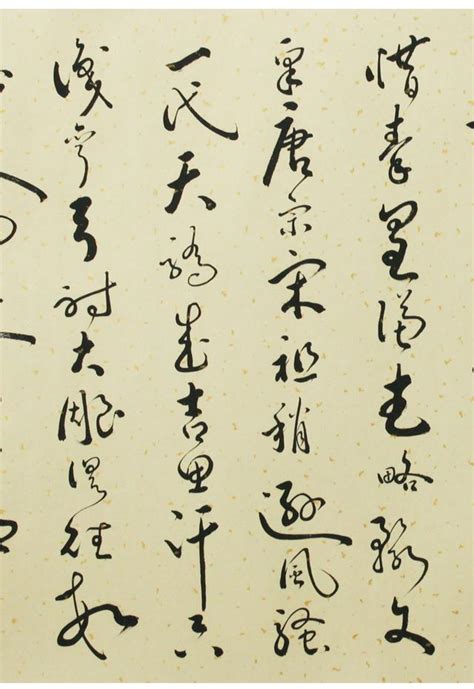 惜秦皇漢武略輸文
采唐宗宋祖稍遜風騷
一代天驕成吉思汗只
識彎弓射大雕俱往矣